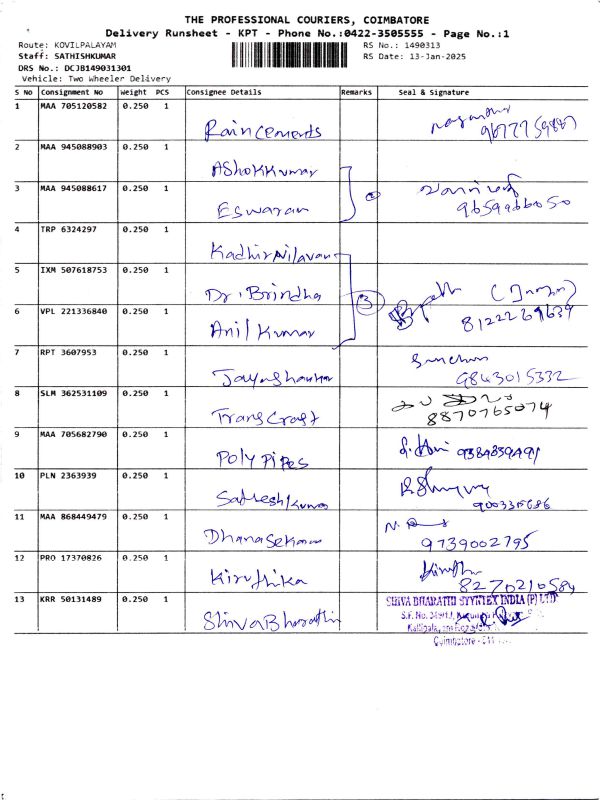 THE PROFESSIONAL COURIERS, COIMBATORE
Delivery Runsheet - KPT - Phone No.:0422-3505555 - Page No.:1
Route: KOVILPALAYAM
RS No.: 1490313
Staff: SATHISHKUMAR
RS Date: 13-Jan-2025
DRS No.: DCJB149031301
Vehicle: Two Wheeler Delivery
S No Consignment No Weight PCS Consignee Details Remarks Seal & Signature
1 MAA 705120582 0.250 1 Raincements
2 MAA 945088903 0.250 1 AShokkumar
3 MAA 945088617 0.250 1 Eswaran 9659966050
4 TRP 6324297 0.250 1 Kadhirnilavan
5 IXM 507618753 0.250 1 Dr. Brindha 3
6 VPL 221336840 0.250 1 Anil kumar 8122269639
7 RPT 3607953 0.250 1 9843015332
8 SLM 362531109 0.250 1 TransCraft 8870765074
9 MAA 705682790 0.250 1 Poly Pipes
10 PLN 2363939 0.250 1
11 MAA 868449479 0.250 1 9739002795
12 PRO 17370826 0.250 1 Kiruthika 8270210584
13 KRR 50131489 0.250 1 Shiva Bharathi
SHIVA BHARATHI INDIA (P) LTD
S.F. No.
Coimbatore